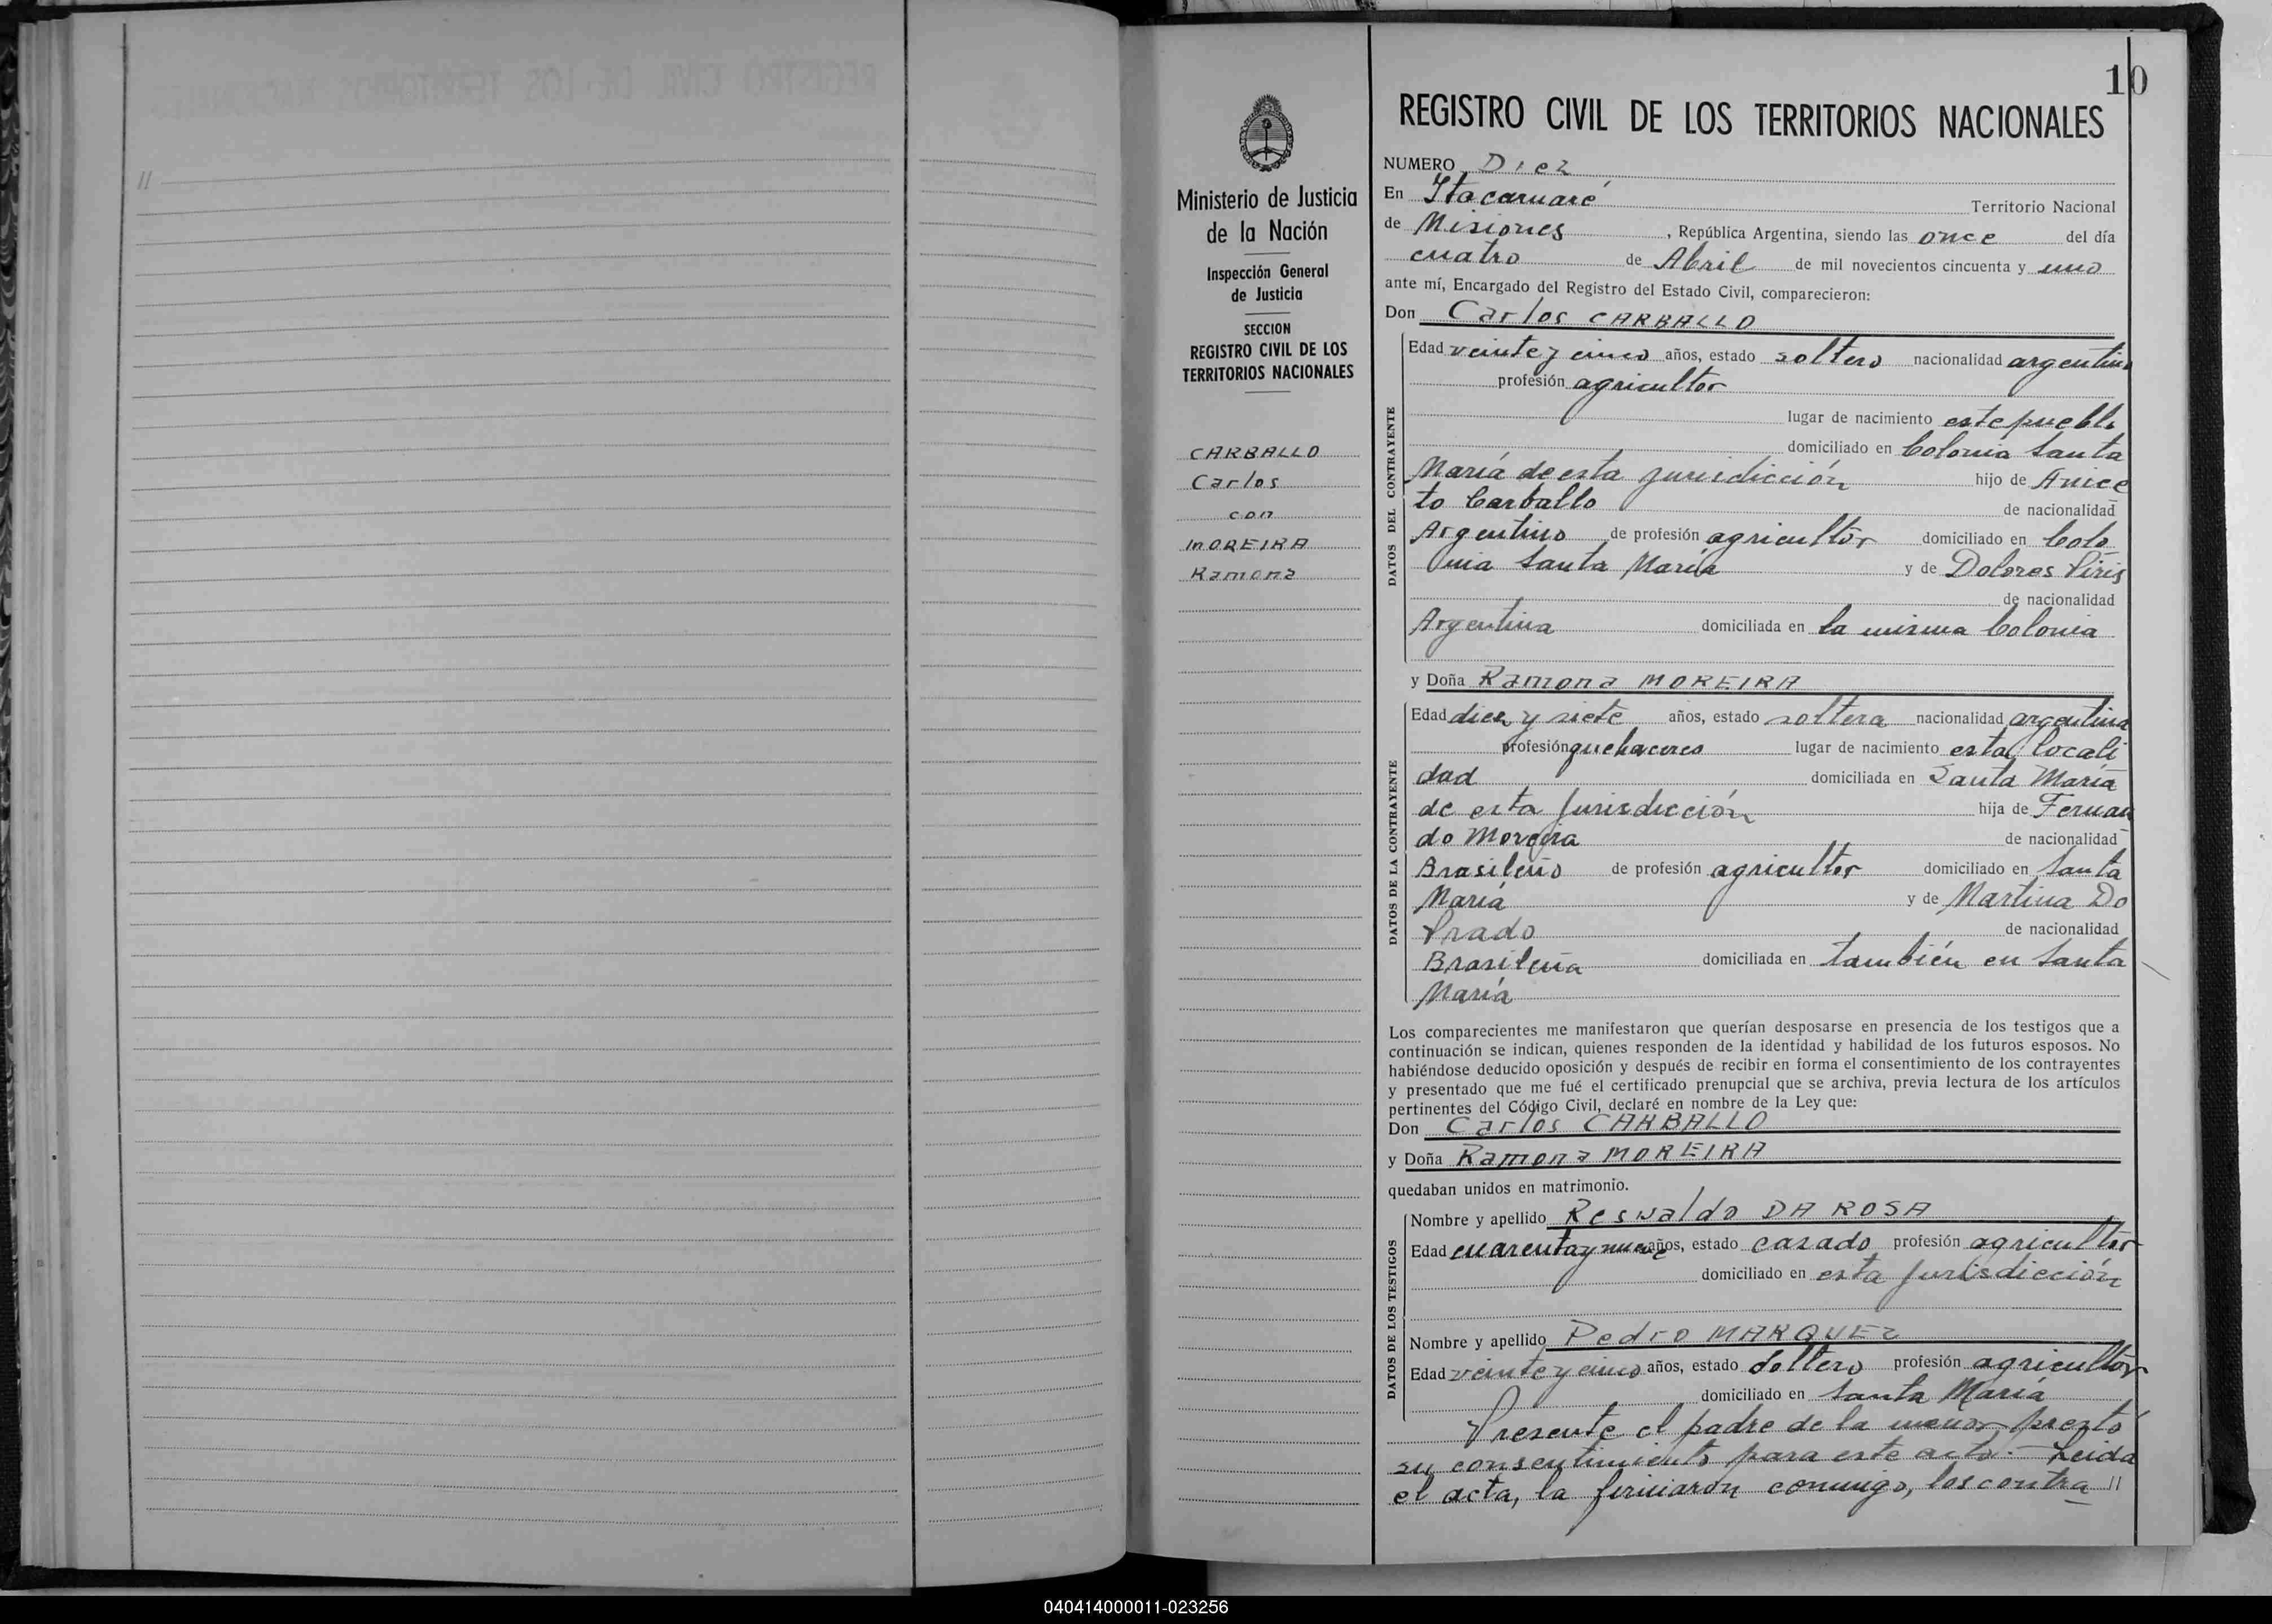 11
10
REGISTRO CIVIL DE LOS TERRITORIOS NACIONALES
Ministerio de Justicia
de la Nación
Inspección General
de Justicia
SECCION
REGISTRO CIVIL DE LOS
TERRITORIOS NACIONALES
CARBALLO
Carlos
con
MOREIRA
Ramona
NUMERO Diez
En Itacaruaré Territorio Nacional
de Misiones, República Argentina, siendo las once del día
cuatro de Abril de mil novecientos cincuenta y uno
ante mí, Encargado del Registro del Estado Civil, comparecieron:
Don Carlos CARBALLO
DATOS DEL CONTRAYENTE
Edad veinte y cinco años, estado soltero nacionalidad argentino
profesión agricultor
lugar de nacimiento este pueblo
domiciliado en Colonia Santa
María de esta jurisdicción hijo de Anice
to Carballo de nacionalidad
Argentino de profesión agricultor domiciliado en Colo
nia Santa María y de Dolores Piris
de nacionalidad
Argentina domiciliada en la misma Colonia
y Doña Ramona MOREIRA
DATOS DE LA CONTRAYENTE
Edad diez y siete años, estado soltera nacionalidad argentina
profesión quehaceres lugar de nacimiento esta locali
dad domiciliada en Santa María
de esta Jurisdicción hija de Fernan
do Moreira de nacionalidad
Brasileño de profesión agricultor domiciliado en Santa
María y de Martina Do
Prado de nacionalidad
Brasileña domiciliada en también en Santa
María
Los comparecientes me manifestaron que querían desposarse en presencia de los testigos que a
continuación se indican, quienes responden de la identidad y habilidad de los futuros esposos. No
habiéndose deducido oposición y después de recibir en forma el consentimiento de los contrayentes
y presentado que me fué el certificado prenupcial que se archiva, previa lectura de los artículos
pertinentes del Código Civil, declaré en nombre de la Ley que:
Don Carlos CARBALLO
y Doña Ramona MOREIRA
quedaban unidos en matrimonio.
DATOS DE LOS TESTIGOS
Nombre y apellido Reswaldo DA ROSA
Edad cuarenta y nueve años, estado casado profesión agricultor
domiciliado en esta Jurisdicción
Nombre y apellido Pedro MARQUEZ
Edad veinte y cinco años, estado soltero profesión agricultor
domiciliado en Santa María
Presente el padre de la menor prestó
su consentimiento para este acto.- Leida
el acta, la firmaron conmigo, los contra //
040414000011-023256